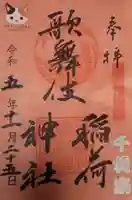 奉拝
歌舞伎
稲荷
神社
令和五年十一月二十五日
千穐楽